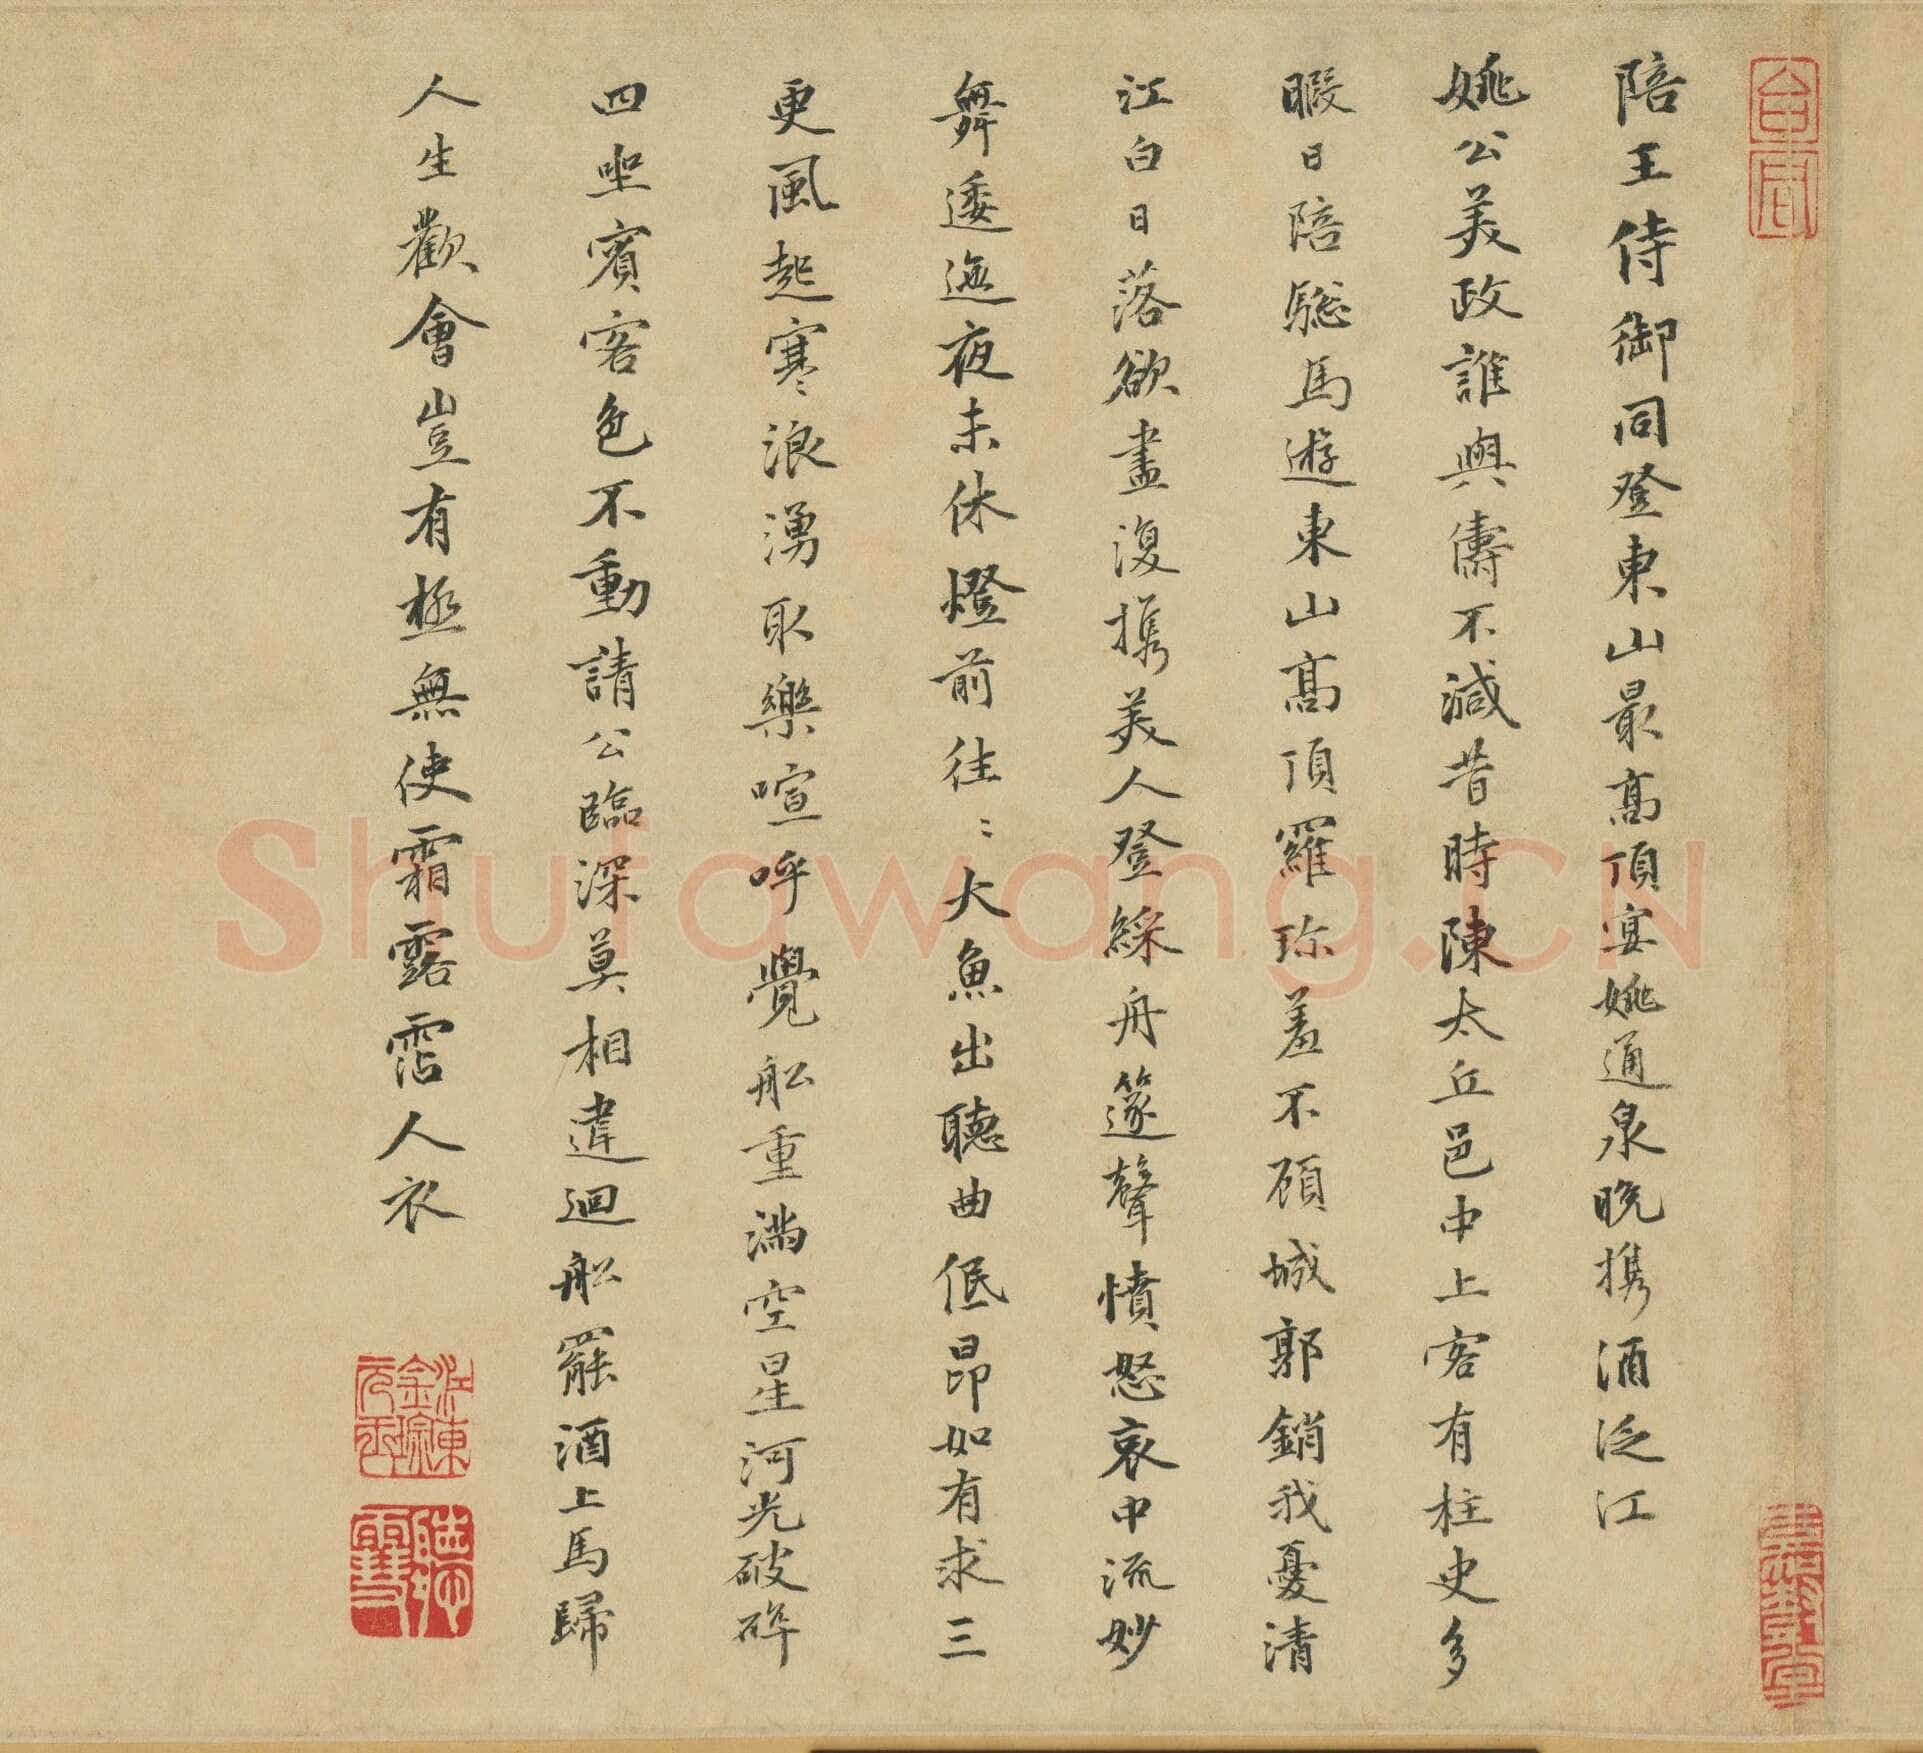 陪王侍御同登東山最高頂宴姚通泉晚携酒泛江
姚公美政誰與儔不減昔時陳太丘邑中上客有柱史多
暇日陪驄馬遊東山高頂羅珎羞不顧城郭銷我憂清
江白日落欲盡復携美人登綵舟邃聲憤怒哀中流妙
舞逶迤夜未休燈前往〻大魚出聽曲低昂如有求三
更風起寒浪湧取樂喧呼覺船重滿空星河光破碎
四坐賓客色不動請公臨深莫相違迴船罷酒上馬歸
人生歡會豈有極無使霜露霑人衣
Shufawang.CN